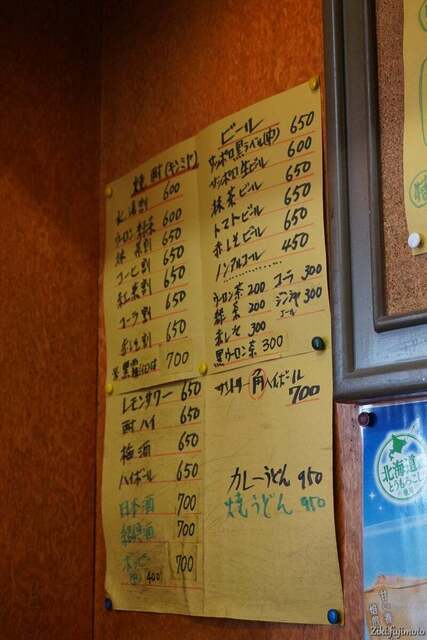 焼酎(キンミヤ)
水湯割 600
ウーロン 緑茶 600
抹茶割 650
コーヒ割 650
紅茶割 650
コーラ割 650
赤しそ割 650
黒 700
レモンサワー 650
酎ハイ 650
梅酒 650
ハイボール 650
日本酒 700
紹興酒 700
700
400
ビール
サッポロ黒ラベル(中) 650
サッポロ生ビール 600
抹茶ビール 650
トマトビール 650
赤しそビール 650
ノンアルコール 450
ウーロン茶 200 コーラ 300
緑茶 200 ジンジャエール 300
赤しそ 300
黒ウーロン茶 300
サントリー角ハイボール
700
カレーうどん 950
焼うどん 950
北海道
とうもろこし
2013.fujimoto